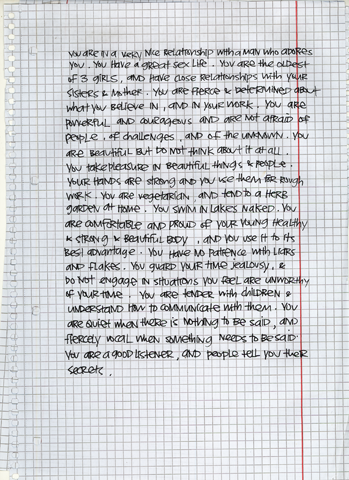 YOU ARE IN A VERY NICE RELATIONSHIP WITH A MAN WHO ADORES
YOU. YOU HAVE A GREAT SEX LIFE. YOU ARE THE OLDEST
OF 3 GIRLS, AND HAVE CLOSE RELATIONSHIPS WITH YOUR
SISTERS & MOTHER. YOU ARE FIERCE & DETERMINED ABOUT
WHAT YOU BELIEVE IN, AND IN YOUR WORK. YOU ARE
POWERFUL AND COURAGEOUS AND ARE NOT AFRAID OF
PEOPLE, OF CHALLENGES, AND OF THE UNKNOWN. YOU
ARE BEAUTIFUL BUT DO NOT THINK ABOUT IT AT ALL.
YOU TAKE PLEASURE IN BEAUTIFUL THINGS & PEOPLE.
YOUR HANDS ARE STRONG AND YOU USE THEM FOR ROUGH
WORK. YOU ARE VEGETARIAN, AND TEND TO A HERB
GARDEN AT HOME. YOU SWIM IN LAKES NAKED. YOU
ARE COMFORTABLE AND PROUD OF YOUR YOUNG HEALTHY
& STRONG & BEAUTIFUL BODY, AND YOU USE IT TO ITS
BEST ADVANTAGE. YOU HAVE NO PATIENCE WITH LIARS
AND FLAKES. YOU GUARD YOUR TIME JEALOUSY, &
DO NOT ENGAGE IN SITUATIONS YOU FEEL ARE UNWORTHY
OF YOUR TIME. YOU ARE TENDER WITH CHILDREN &
UNDERSTAND HOW TO COMMUNICATE WITH THEM. YOU
ARE QUIET WHEN THERE IS NOTHING TO BE SAID, AND
FIERCELY VOCAL WHEN SOMETHING NEEDS TO BE SAID.
YOU ARE A GOOD LISTENER, AND PEOPLE TELL YOU THEIR
SECRETS.